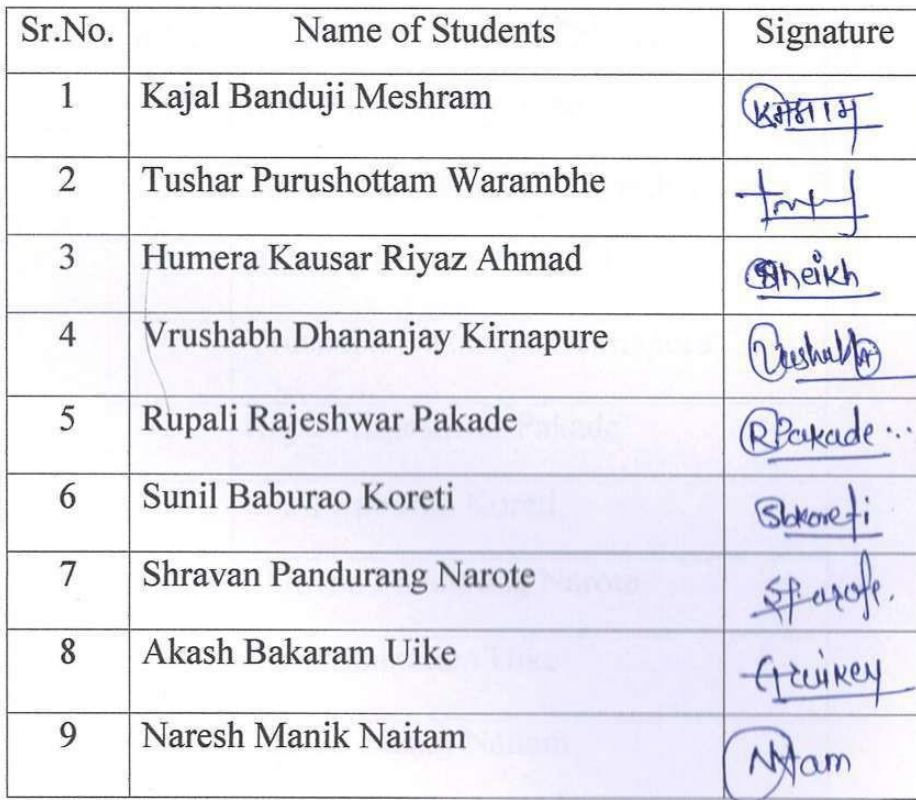 Sr.No. Name of Students Signature
1 Kajal Banduji Meshram
2 Tushar Purushottam Warambhe
3 Humera Kausar Riyaz Ahmad Sheikh
4 Vrushabh Dhananjay Kirnapure
5 Rupali Rajeshwar Pakade RPakade
6 Sunil Baburao Koreti Sbkoreti
7 Shravan Pandurang Narote
8 Akash Bakaram Uike
9 Naresh Manik Naitam